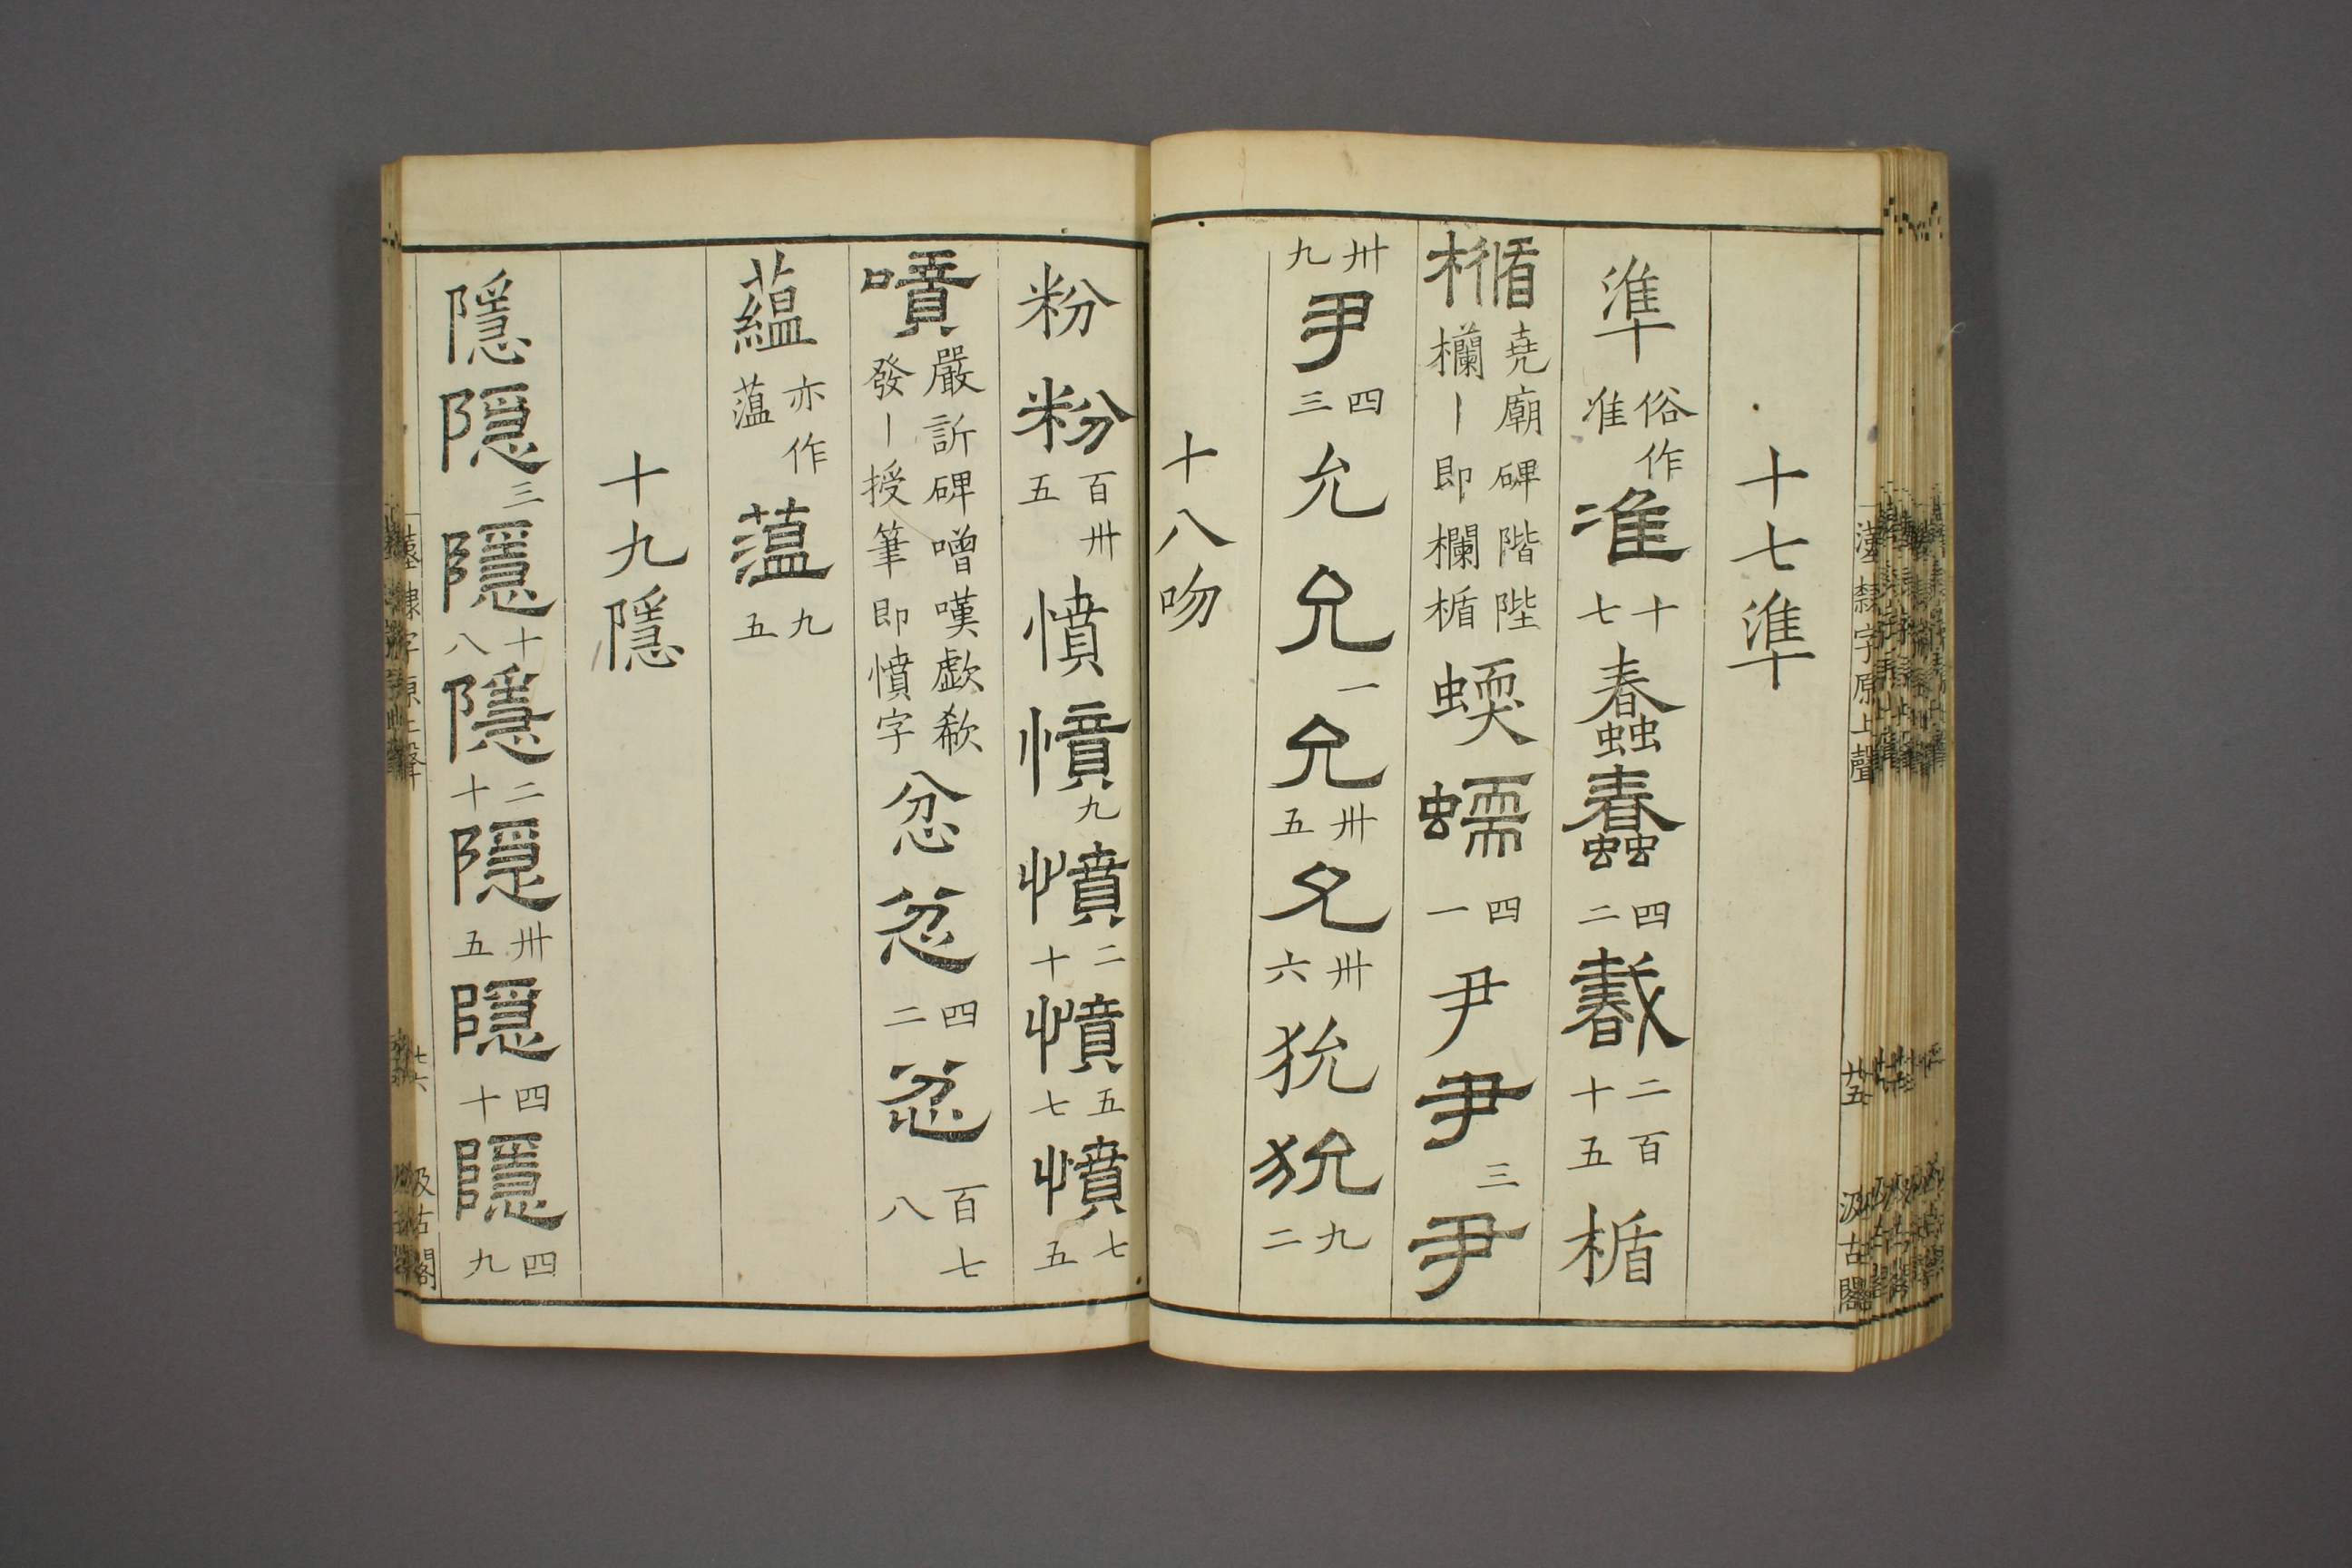 十七準
準 俗作准 准 十七 蠢 蠢 四二 𢧨 二百十五 楯
楯 堯廟碑階陛欄丨即欄楯 蝡 蠕 四一 尹 尹 三 尹
卅九 尹 四三 允 允 一 允 卅五 允 卅六 狁 狁 九二
十八吻
粉 粉 百卅五 憤 憤 九 憤 二十 憤 五七 憤 七五
噴 嚴訢碑噌嘆歔欷發丨授筆即憤字 忿 忿 四二 忿 百七八
蘊 亦作薀 薀 九五
十九隱
隱 隱 三 隱 十八 隱 二十 隱 卅五 隱 四十 隱 四九
漢隸字原上聲
廿五
汲古閣